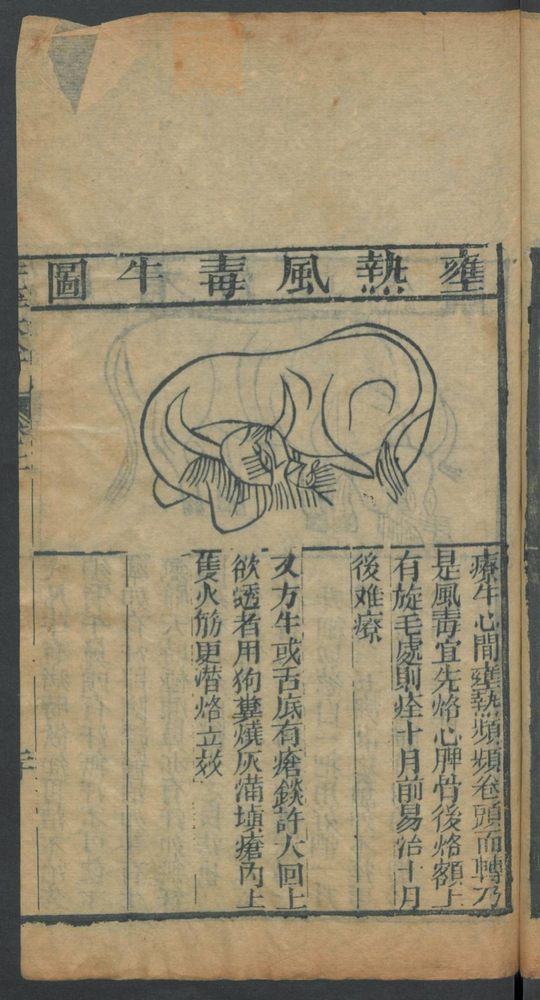 壅熱風毒牛圖
療牛心間壅熱頻頻卷頭而轉乃
是風毒宜先烙心脾骨後烙額上
有旋毛處則痊十月前易治十月
後难療
又方牛或舌底有瘡錢許大回上
欲透者用狗糞燒灰滿塡瘡內上
隻火筯更潛烙立效